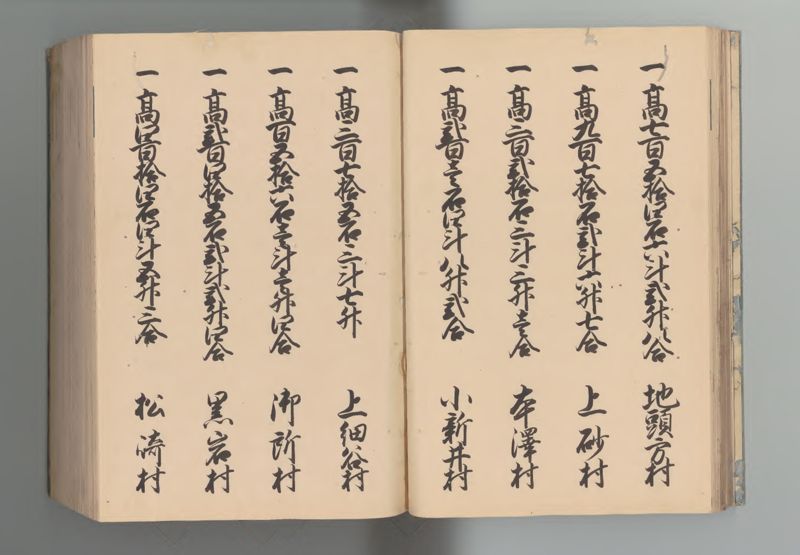 一 高七百五拾四石六斗弐升八合 地頭方村
一 高九百七拾石弐斗六升七合 上砂村
一 高三百弐拾石三斗三升壱合 本澤村
一 高弐百壱石四斗八升弐合 小新井村
一 高三百七拾五石三斗七升 上細谷村
一 高百五拾六石壱斗壱升四合 御所村
一 高弐百四拾五石弐斗弐升四合 黒岩村
一 高四百拾四石四斗五升三合 松崎村